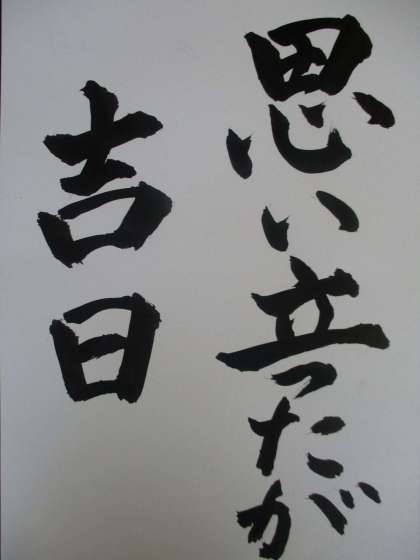 思い立ったが
吉日